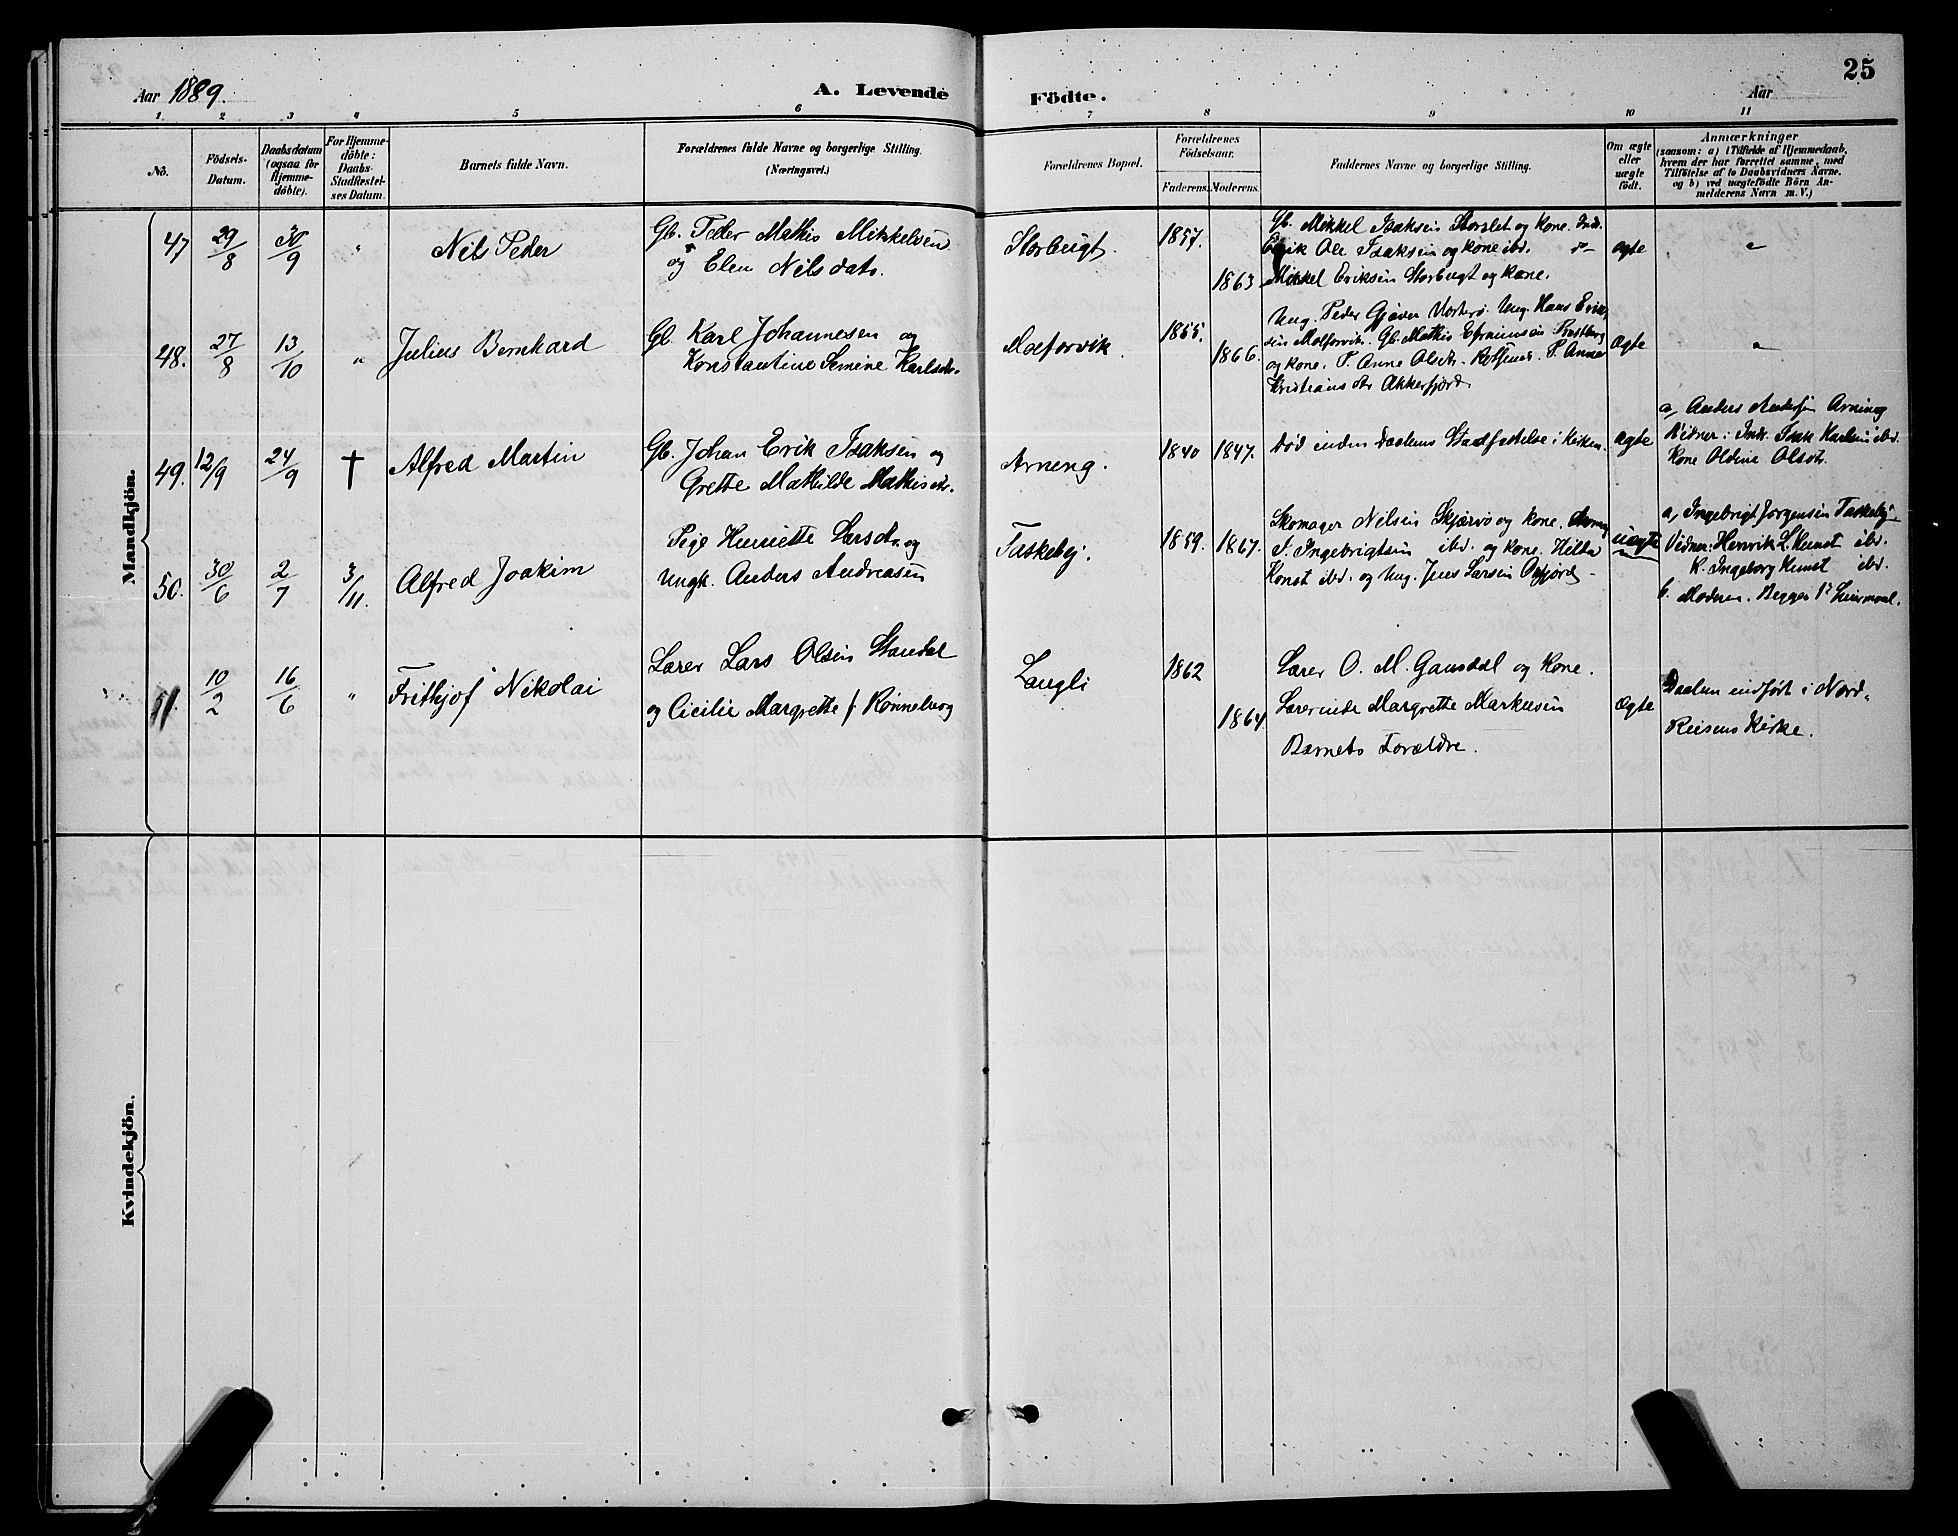 25
Aar 1889.
A. Levende Födte.
Aar
1.
2
3
4
5
6
7
8
9
10
11
No.
Födsels-
Datum.
Daabsdatum
(ogsaa for
Hjemme-
döbte).
For Hjemme-
döbte:
Daabs-
Stadfæstel-
ses Datum.
Barnets fulde Navn.
Forældrenes fulde Navne og borgerlige Stilling.
(Næringsvei.)
Forældrenes Bopæl.
Forældrenes
Födselsaar.
Faderens.
Moderens.
Faddernes Navne og borgerlige Stilling.
Om ægte
eller
uægte
födt.
Anmærkninger
(saasom: a) i Tilfælde af Hjemmedaab,
hvem der har forrettet samme, med
Tilföielse af to Daabsvidners Navne,
og b) ved uægtefödte Börn An-
melderens Navn m.V.)
Mandkjön.
47
29/8
30/9
"
Nils Peder
Gb. Peder Mathis Mikkelsen
og Elen Nilsdatr.
Storbugt.
1857.
1863
Gb. Mikkel Isaksen Storslet og Kone. Indr.
Erik Ole Isaksen og Kone ibd.
Mikkel Eriksen Storbugt og Kone.
ægte
"
48.
27/8
13/10
"
Julius Bernhard
Gb. Karl Johannesen og
Konstantine Semine Karlsdtr.
Maeforvik.
1855.
1866.
Ung. Peder Gjæver Ung. Hans Erik-
sen Gb. Mathis Efraimsen
og Kone. P. Anne Olsdtr. P. Anne
Kristiansdtr Akkerfjord
Ægte
"
49.
12/9
24/9
†
Alfred Martin
Gb. Johan Erik Isaksen og
Grette Mathilde Mathisdtr.
Arneng.
1840
1847.
Död inden Daabens Stadfæstelse i Kirken.
ægte
a, Anders Arneng
Vidner: Indr. Isak Karlsen ibd.
Kone Oldine Olsdtr.
50.
30/6
2/7
3/11.
Alfred Joakim
Pige Henriette Larsdtr. og
Ungk. Anders Andreasen
Taskeby.
1859.
1867.
Skomager Nilsen Skjærvö og Kone.
J. Ingebrigtsen ibd. og Kone. Hilda
ibd. og Ung. Jens Larsen
uægte
a, Ingebrigt Jorgensen Taskeby
Vidner: Henrik L. Kunst ibd.
K. Ingeborg Kunst ibd.
b. Moderen. Begges 1ste Leiermaal.
51.
10/2
16/6
"
Frithjof Nikolai
Lærer Lars Olsen Standal
og Cicilie Margrette f. Rönneberg
Langli
1862
1864
Lærer O. M. Gausdal og Kone.
Lærerinde Margrette Markusen
Barnets Forældre.
Ægte
Daaben indfört i Nord-
Reisens Kirke.
Kvindekjön.